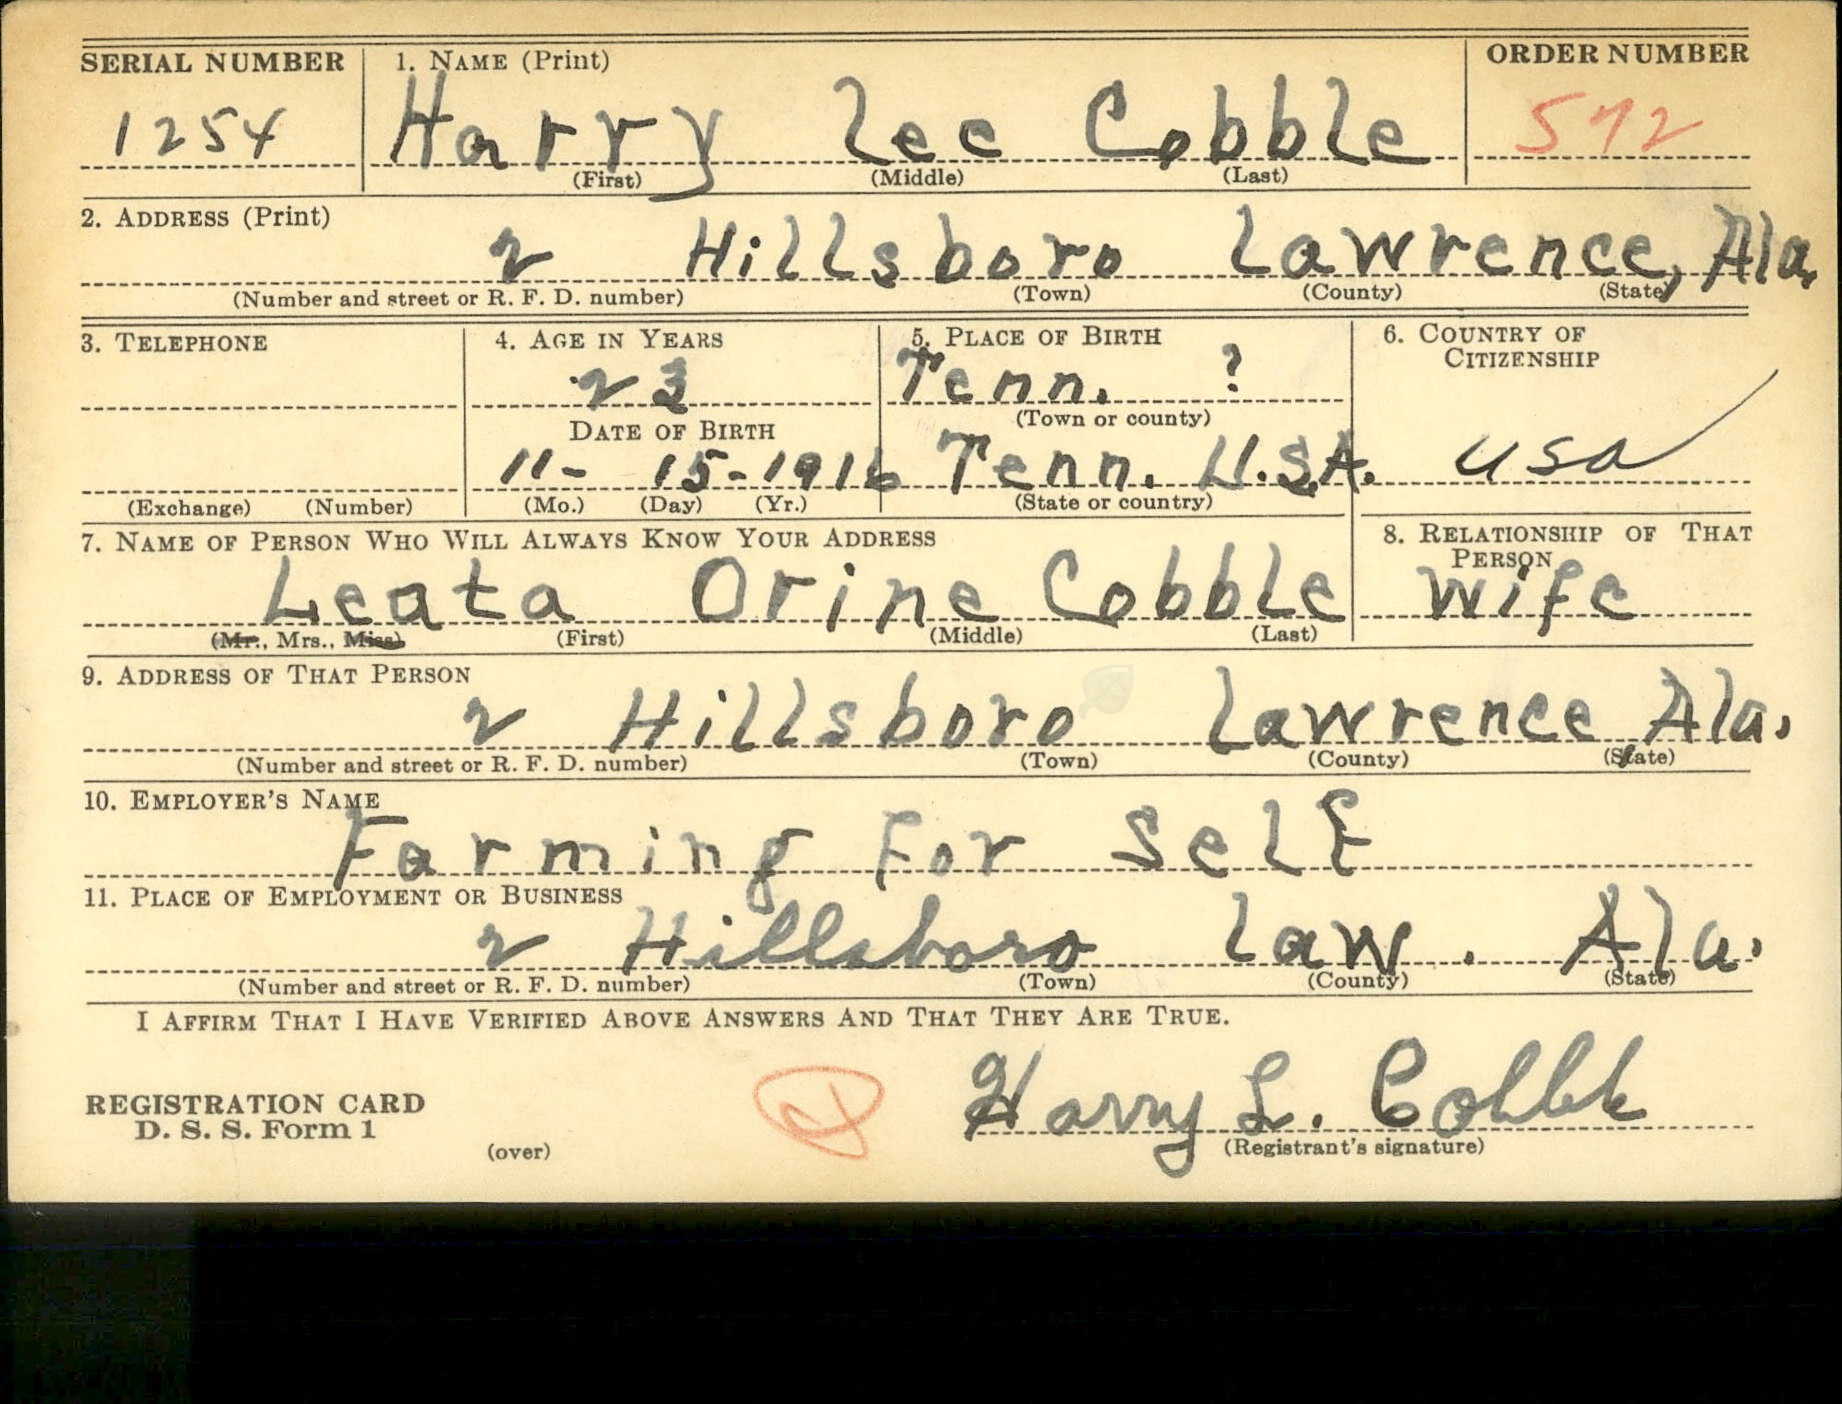 SERIAL NUMBER 1. NAME (Print) ORDER NUMBER
1254 Harry Lee Cobble 572
(First) (Middle) (Last)
2. ADDRESS (Print)
2 Hillsboro Lawrence, Ala.
(Number and street or R. F. D. number) (Town) (County) (State)
3. TELEPHONE 4. AGE IN YEARS 5. PLACE OF BIRTH 6. COUNTRY OF CITIZENSHIP
23 Tenn. ?
(Town or county)
DATE OF BIRTH
11-15-1916 Tenn. U.S.A. USA
(Exchange) (Number) (Mo.) (Day) (Yr.) (State or country)
7. NAME OF PERSON WHO WILL ALWAYS KNOW YOUR ADDRESS 8. RELATIONSHIP OF THAT PERSON
Leata Orine Cobble Wife
(Mr., Mrs., Miss) (First) (Middle) (Last)
9. ADDRESS OF THAT PERSON
2 Hillsboro Lawrence Ala.
(Number and street or R. F. D. number) (Town) (County) (State)
10. EMPLOYER'S NAME
Farming For Self
11. PLACE OF EMPLOYMENT OR BUSINESS
2 Hillsboro Law. Ala.
(Number and street or R. F. D. number) (Town) (County) (State)
I AFFIRM THAT I HAVE VERIFIED ABOVE ANSWERS AND THAT THEY ARE TRUE.
Harry L. Cobble
REGISTRATION CARD
D. S. S. Form 1
(over) (Registrant's signature)